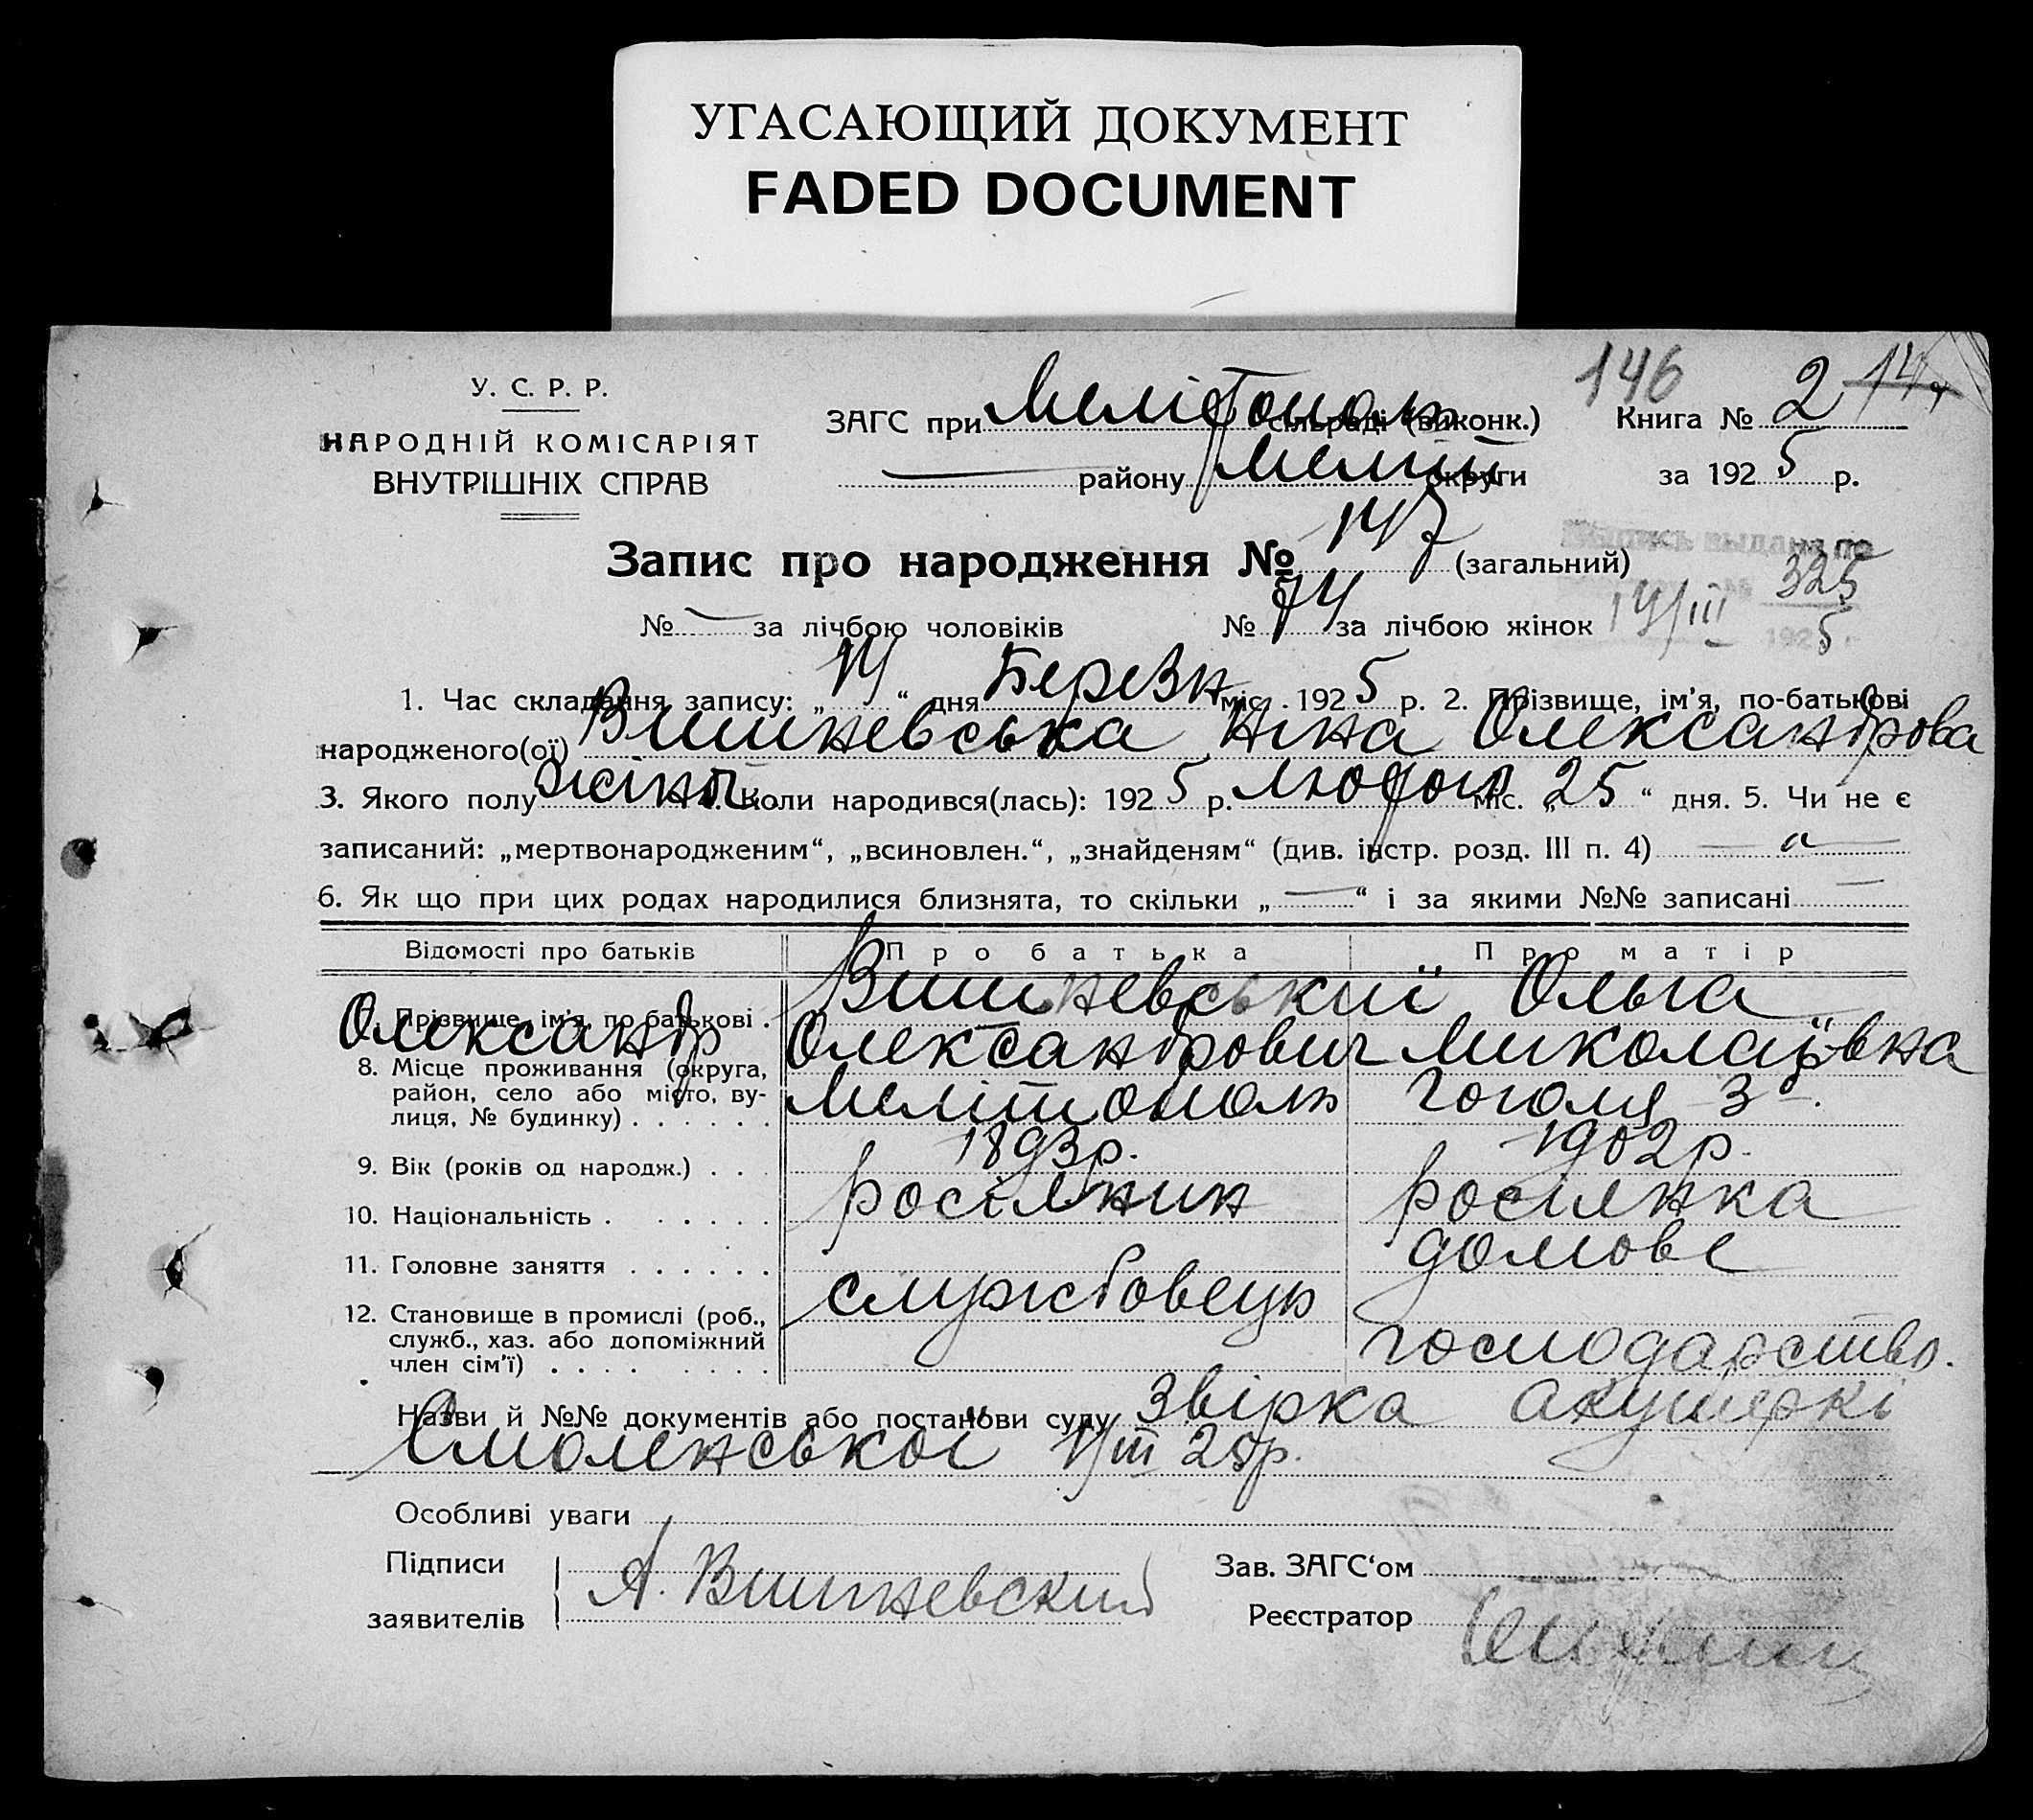 УГАСАЮЩИЙ ДОКУМЕНТ
FADED DOCUMENT
У. С. Р. Р.
НАРОДНІЙ КОМІСАРІЯТ
ВНУТРІШНІХ СПРАВ
146
ЗАГС при Мелітополь сільраді (виконк.) Книга № 2
— району Меліт округи за 1925 р.
Запис про народження № 147 (загальний)
выдана по
325
№ — за лічбою чоловіків № 74 за лічбою жінок 14/III 1925
1. Час складання запису: „14“ дня Березн міс. 1925 р. 2. Прізвище, ім'я, по-батькові
народженого(ої) Вишневська Ніна Олександрова
3. Якого полу жіноч. 4. Коли народився(лась): 1925 р. лютого міс. „25“ дня. 5. Чи не є
записаний: „мертвонародженим“, „всиновлен.“, „знайденям“ (див. інстр. розд. III п. 4)
6. Як що при цих родах народилися близнята, то скільки „—“ і за якими №№ записані —
Відомості про батьків Про батька Про матір
Прізвище, ім'я, по батькові . Вишневський Ольга
Олександр Олександрович Миколаївна
8. Місце проживання (округа,
район, село або місто, ву-
лиця, № будинку) . . . . . . Мелітополь Гоголя 3
9. Вік (років од народж.) . . . 1893р. 1902р.
10. Національність . . . . . . росіянин росіянка
11. Головне заняття . . . . . . домове
12. Становище в промислі (роб.,
служб., хаз. або допоміжний
член сім'ї) . . . . . . . . службовець господарство.
Назви й №№ документів або постанови суду Звірка акушеркі
Смоленської 1/III 25р.
Особливі уваги
Підписи
заявителів А. Вишневский
Зав. ЗАГС'ом
Реєстратор